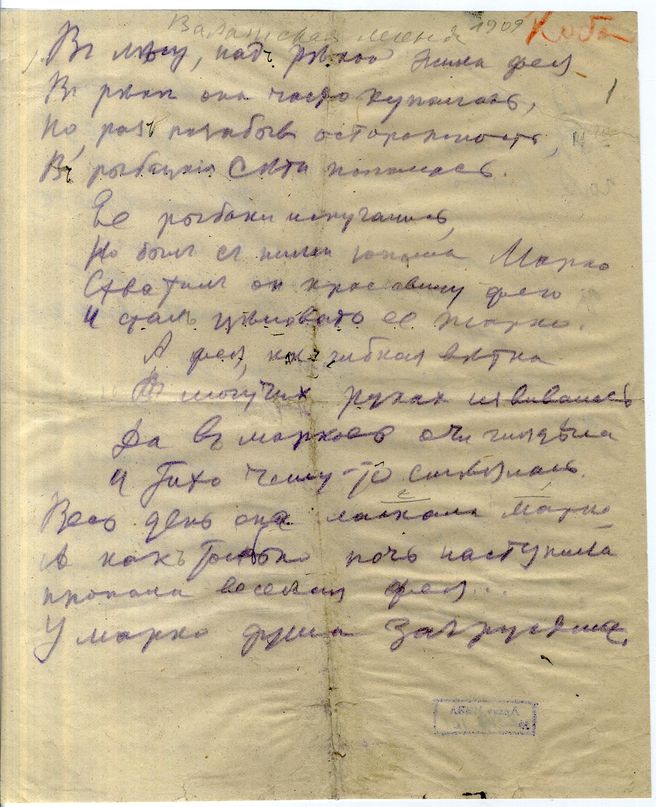 Валашская легенда 1909 Коба
1
Въ лѣсу, надъ рѣкой жила фея
Въ рѣкѣ она часто купалась,
Но, разъ позабывъ осторожность,
Въ рыбацкія сѣти попалась.
Ее рыбаки испугались
Но былъ съ ними юноша Марко
Схватилъ он красавицу фею
И сталъ цѣловать ее жарко.
А фея, какъ гибкая вѣтка
Въ могучих руках извивалась
Да въ Марковы очи глядѣла
И тихо чему-то смѣялась.
Весь день она ласкала Марко
А какъ только ночь наступила
пропала веселая фея...
У Марко душа загрустила.